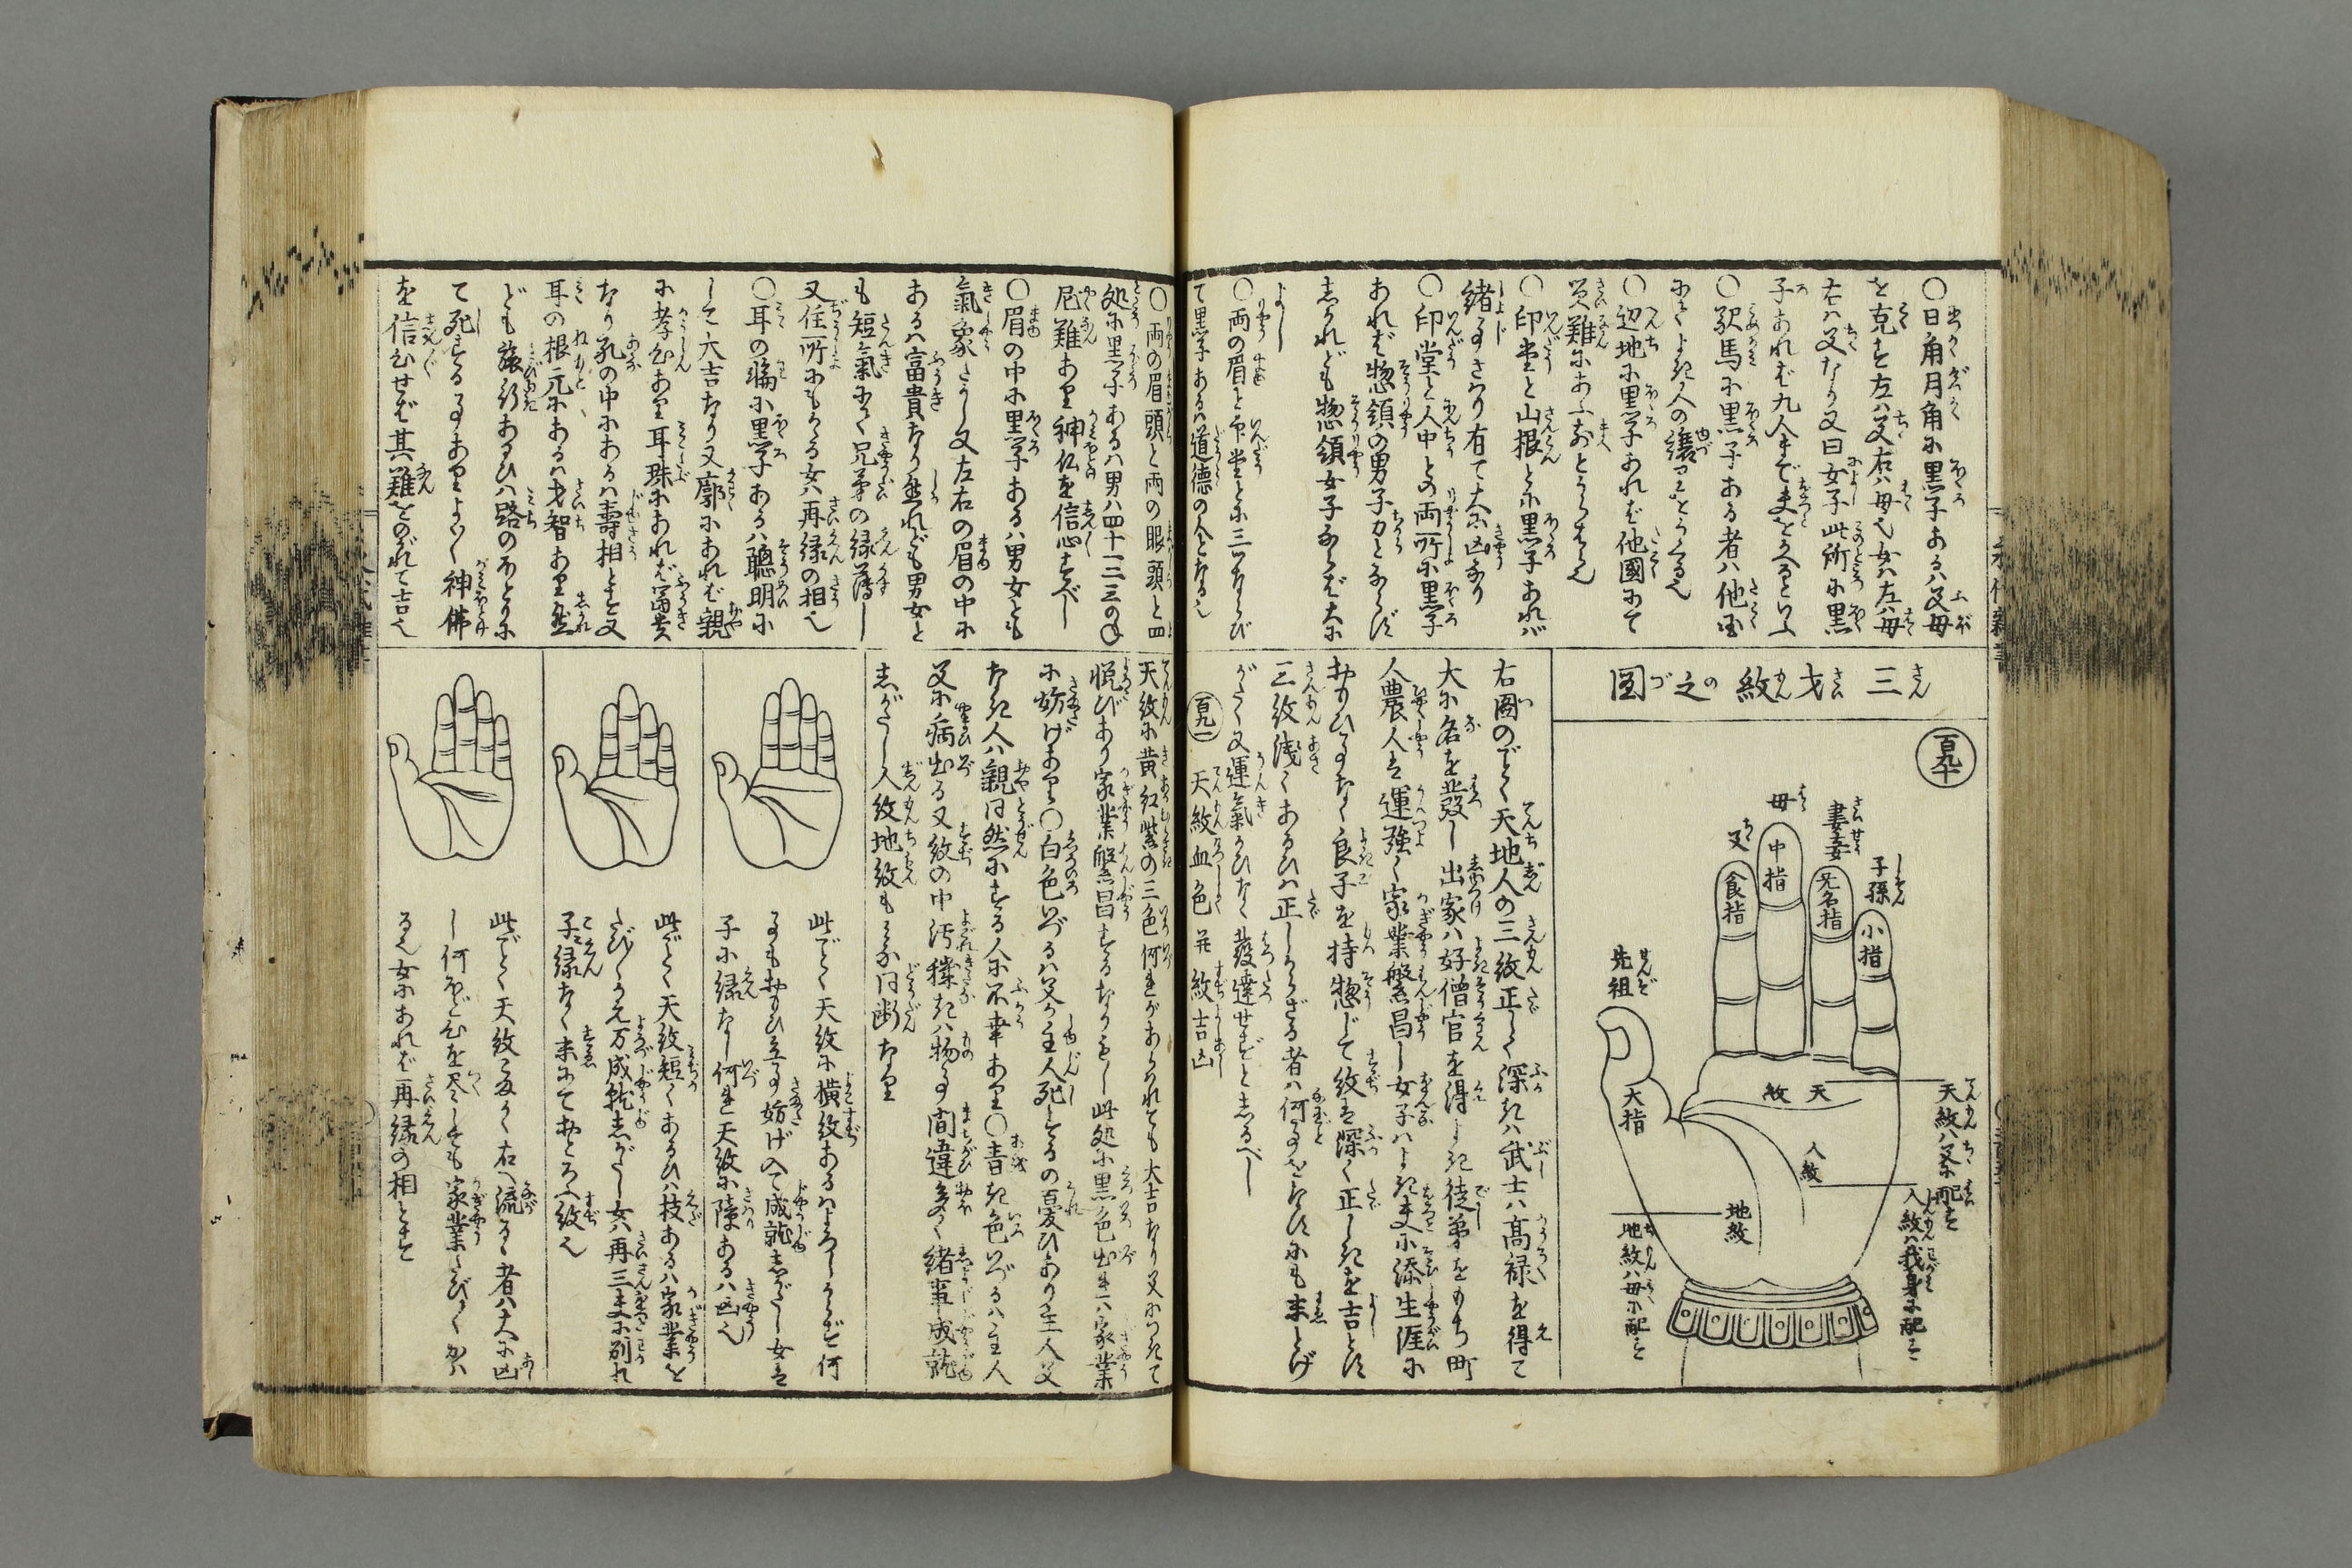 〇日角月角に黒子あるハ父母
を克す左ハ父右ハ母也女ハ左ハ母
右ハ父なり又曰女子此所に黒
子あれバ九人まで夫をかへるといふ
〇駅馬に黒子ある者ハ他国
にてよき人の譲りをうくる也
〇辺地に黒子あれバ他國にて
災難にあふおとろふる也
〇印堂と山根とに黒子あれバ
緒事さはり有て大に凶なり
〇印堂と人中との両所に黒子
あれバ惣領の男子力とならず
されども惣領女子ならバ大に
よし
〇両の眉と印堂とに三ツならび
て黒子あるハ道徳の人となる也
三才紋之圖
百九十
母
中指
父
食指
妻妾
无名指
子孫
小指
先祖
大指
天紋
人紋
地紋
天紋ハ父に配す
人紋ハ我身に配す
地紋ハ母に配す
右圖のごとく天地人の三紋正しく深きハ武士ハ高禄を得て
大に名を發し出家ハ好僧官を得よき徒弟をもち町
人農人は運強く家業繁昌し女子ハよき夫に添生涯に
おもひ事なく良子を持惣じて紋は深く正しきを吉とす
三紋浅くあるひハ正しからざる者ハ何事をなすにも末とげ
がたく又運氣かひなく發達せずとしるべし
百九一 天紋血色并紋吉凶
〇両の眉頭と両の眼頭と四
処に黒子あるハ男ハ四十二三の年
厄難あり神仏を信心すべし
〇眉の中に黒子あるハ男女とも
氣象さかし又左右の眉の中に
あるハ富貴なり然れども男女と
も短氣にて兄弟の縁薄し
又住所にもかゝる女ハ再縁の相也
〇耳の輪に黒子あるハ聰明に
して大吉なり又廓にあれバ親
に孝心あり耳珠にあれバ富貴
なり孔の中にあるハ壽相とす又
耳の根元にあるハ才智あり然れ
ども旅行あるひハ路のほとりに
て死する事ありよく〱神佛
を信心せバ其難をのがれて吉也
天紋に黄紅紫の三色何れがあらわれても大吉なり又につきて
悦びあり家業繁昌するなりもし此処に黒色出れハ家業
に妨げあり〇白色いづるハ父か主人死するの憂ひあり主人父
なき人ハ親同然にする人に不幸あり〇青き色いづるハ主人
父に病出る又紋の中汚穢きハ物事間違多く緒事成就
しがたし人紋地紋もみな同断なり
此ごとく天紋に横紋あるハよろしからず何
事もおもひ立事妨げ入て成就しがたし女は
子に縁なし何れ天紋に障あるハ凶也
此ごとく天紋短くあるひハ枝あるハ家業を
たび〱かえ万成就しがたし女ハ再三夫に別れ
子に縁なく末にておとろふ紋也
此ごとく天紋ながく右へ流るゝ者ハ大に凶
し何ほど心を尽しても家業たび〱かハ
る也女にあれバ再縁の相とす